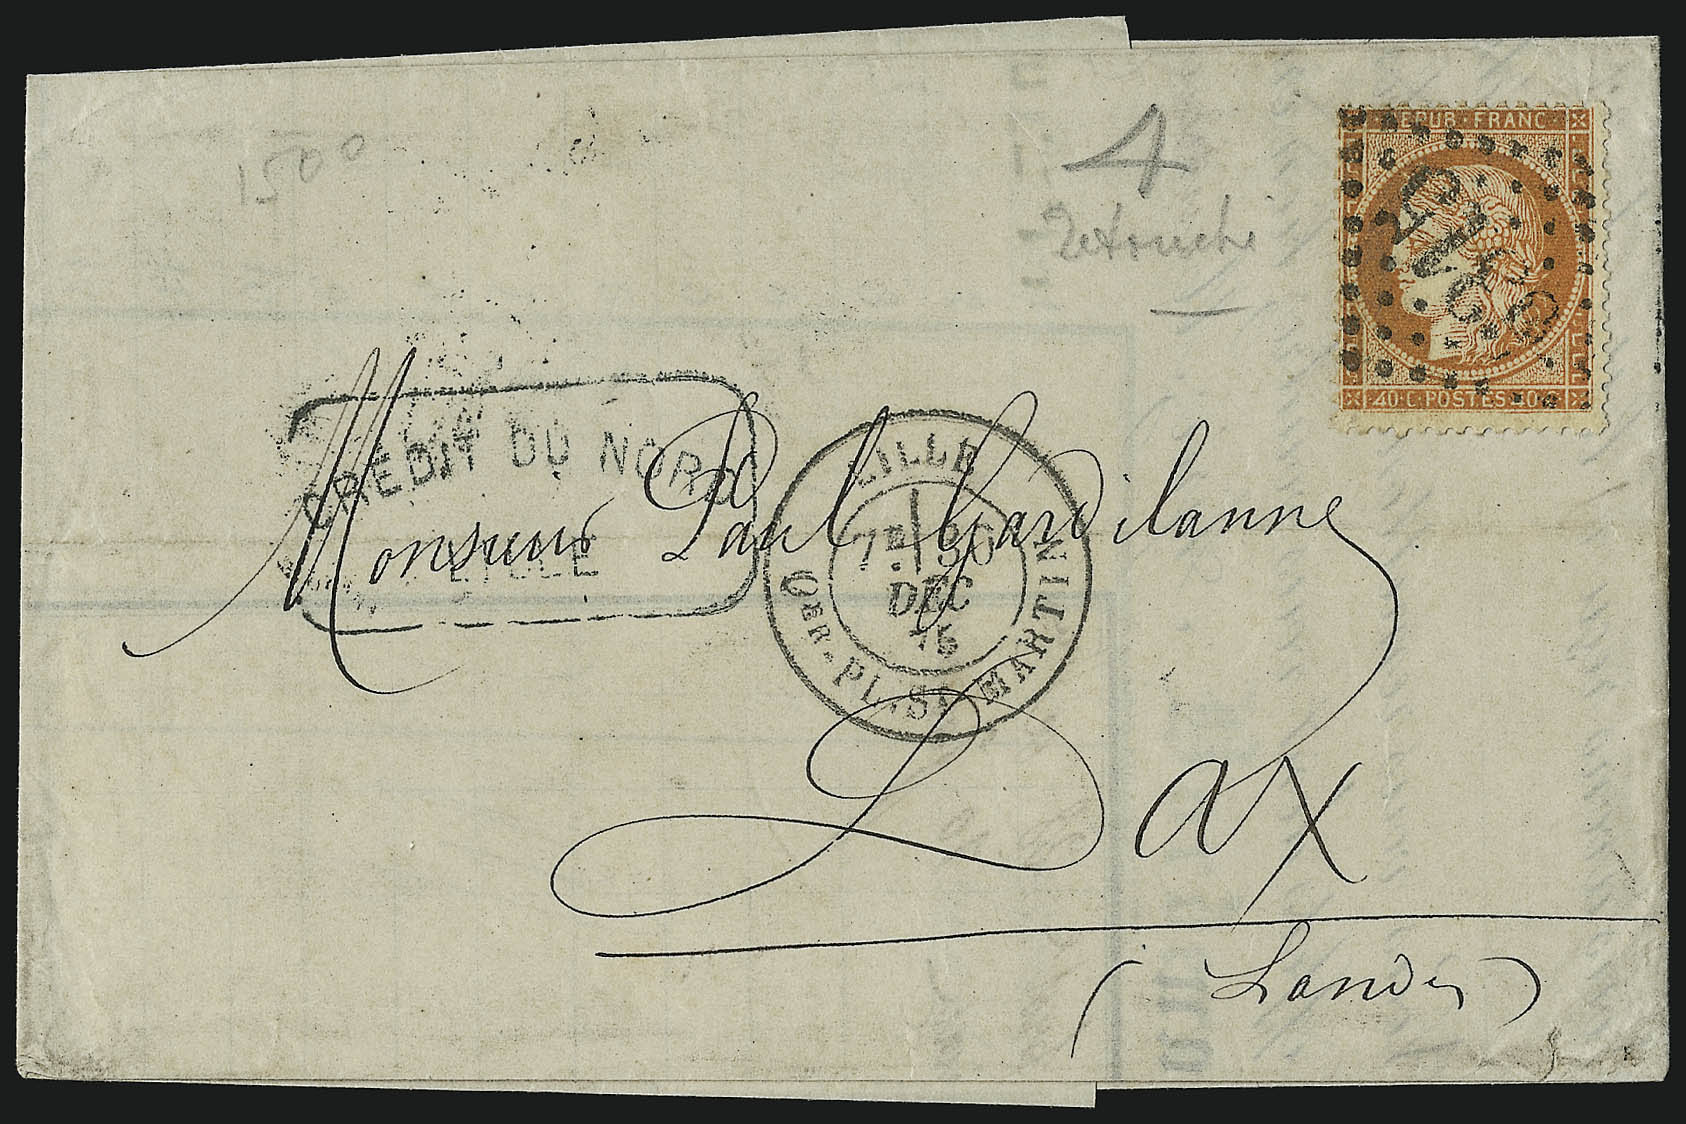 1500
4
Retouche
REPUB·FRANC
40·C·POSTES·40·C
CREDIT DU NORD
LILLE
LILLE
7E 30
DEC
75
QER-PL.ST MARTIN
Monsieur Paul Gardilanne
Dax
(Landes)